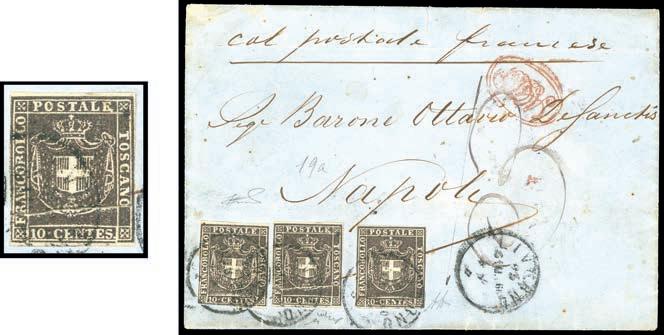 POSTALE
FRANCOBOLLO
TOSCANO
10 CENTES.
col postale francese
Sigr Barone Ottavio DeSanctis
19a
Napoli
POSTALE
FRANCOBOLLO
TOSCANO
10 CENTES.
POSTALE
FRANCOBOLLO
TOSCANO
10 CENTES.
POSTALE
FRANCOBOLLO
TOSCANO
10 CENTES.
LIVORNO